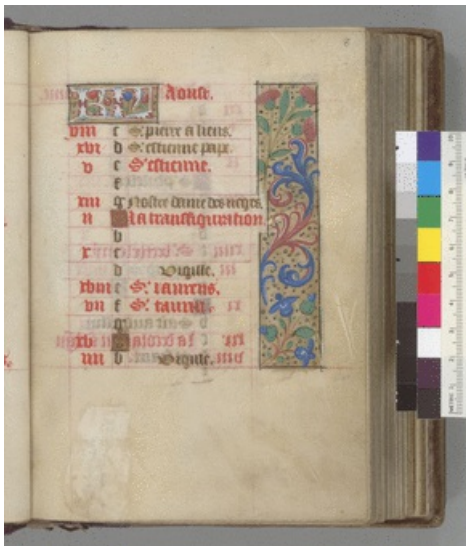 KL Aoust.
viii c S. pierre a liens.
xvi d S. estienne pape.
v e S. estienne.
f
xiii g Nostre dame des neges.
ii A La transfiguration
b
x c
d Vigille.
xviii e S. laurens.
vii f S. taurin.
g
xv A
iiii b Vigille.